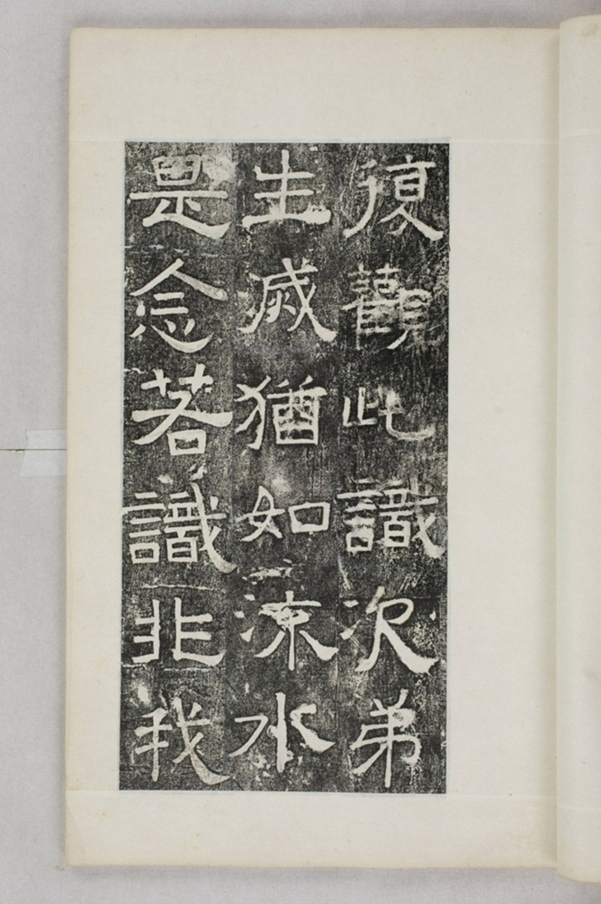 復觀此識次弟
生滅猶如流水
是念若識非我